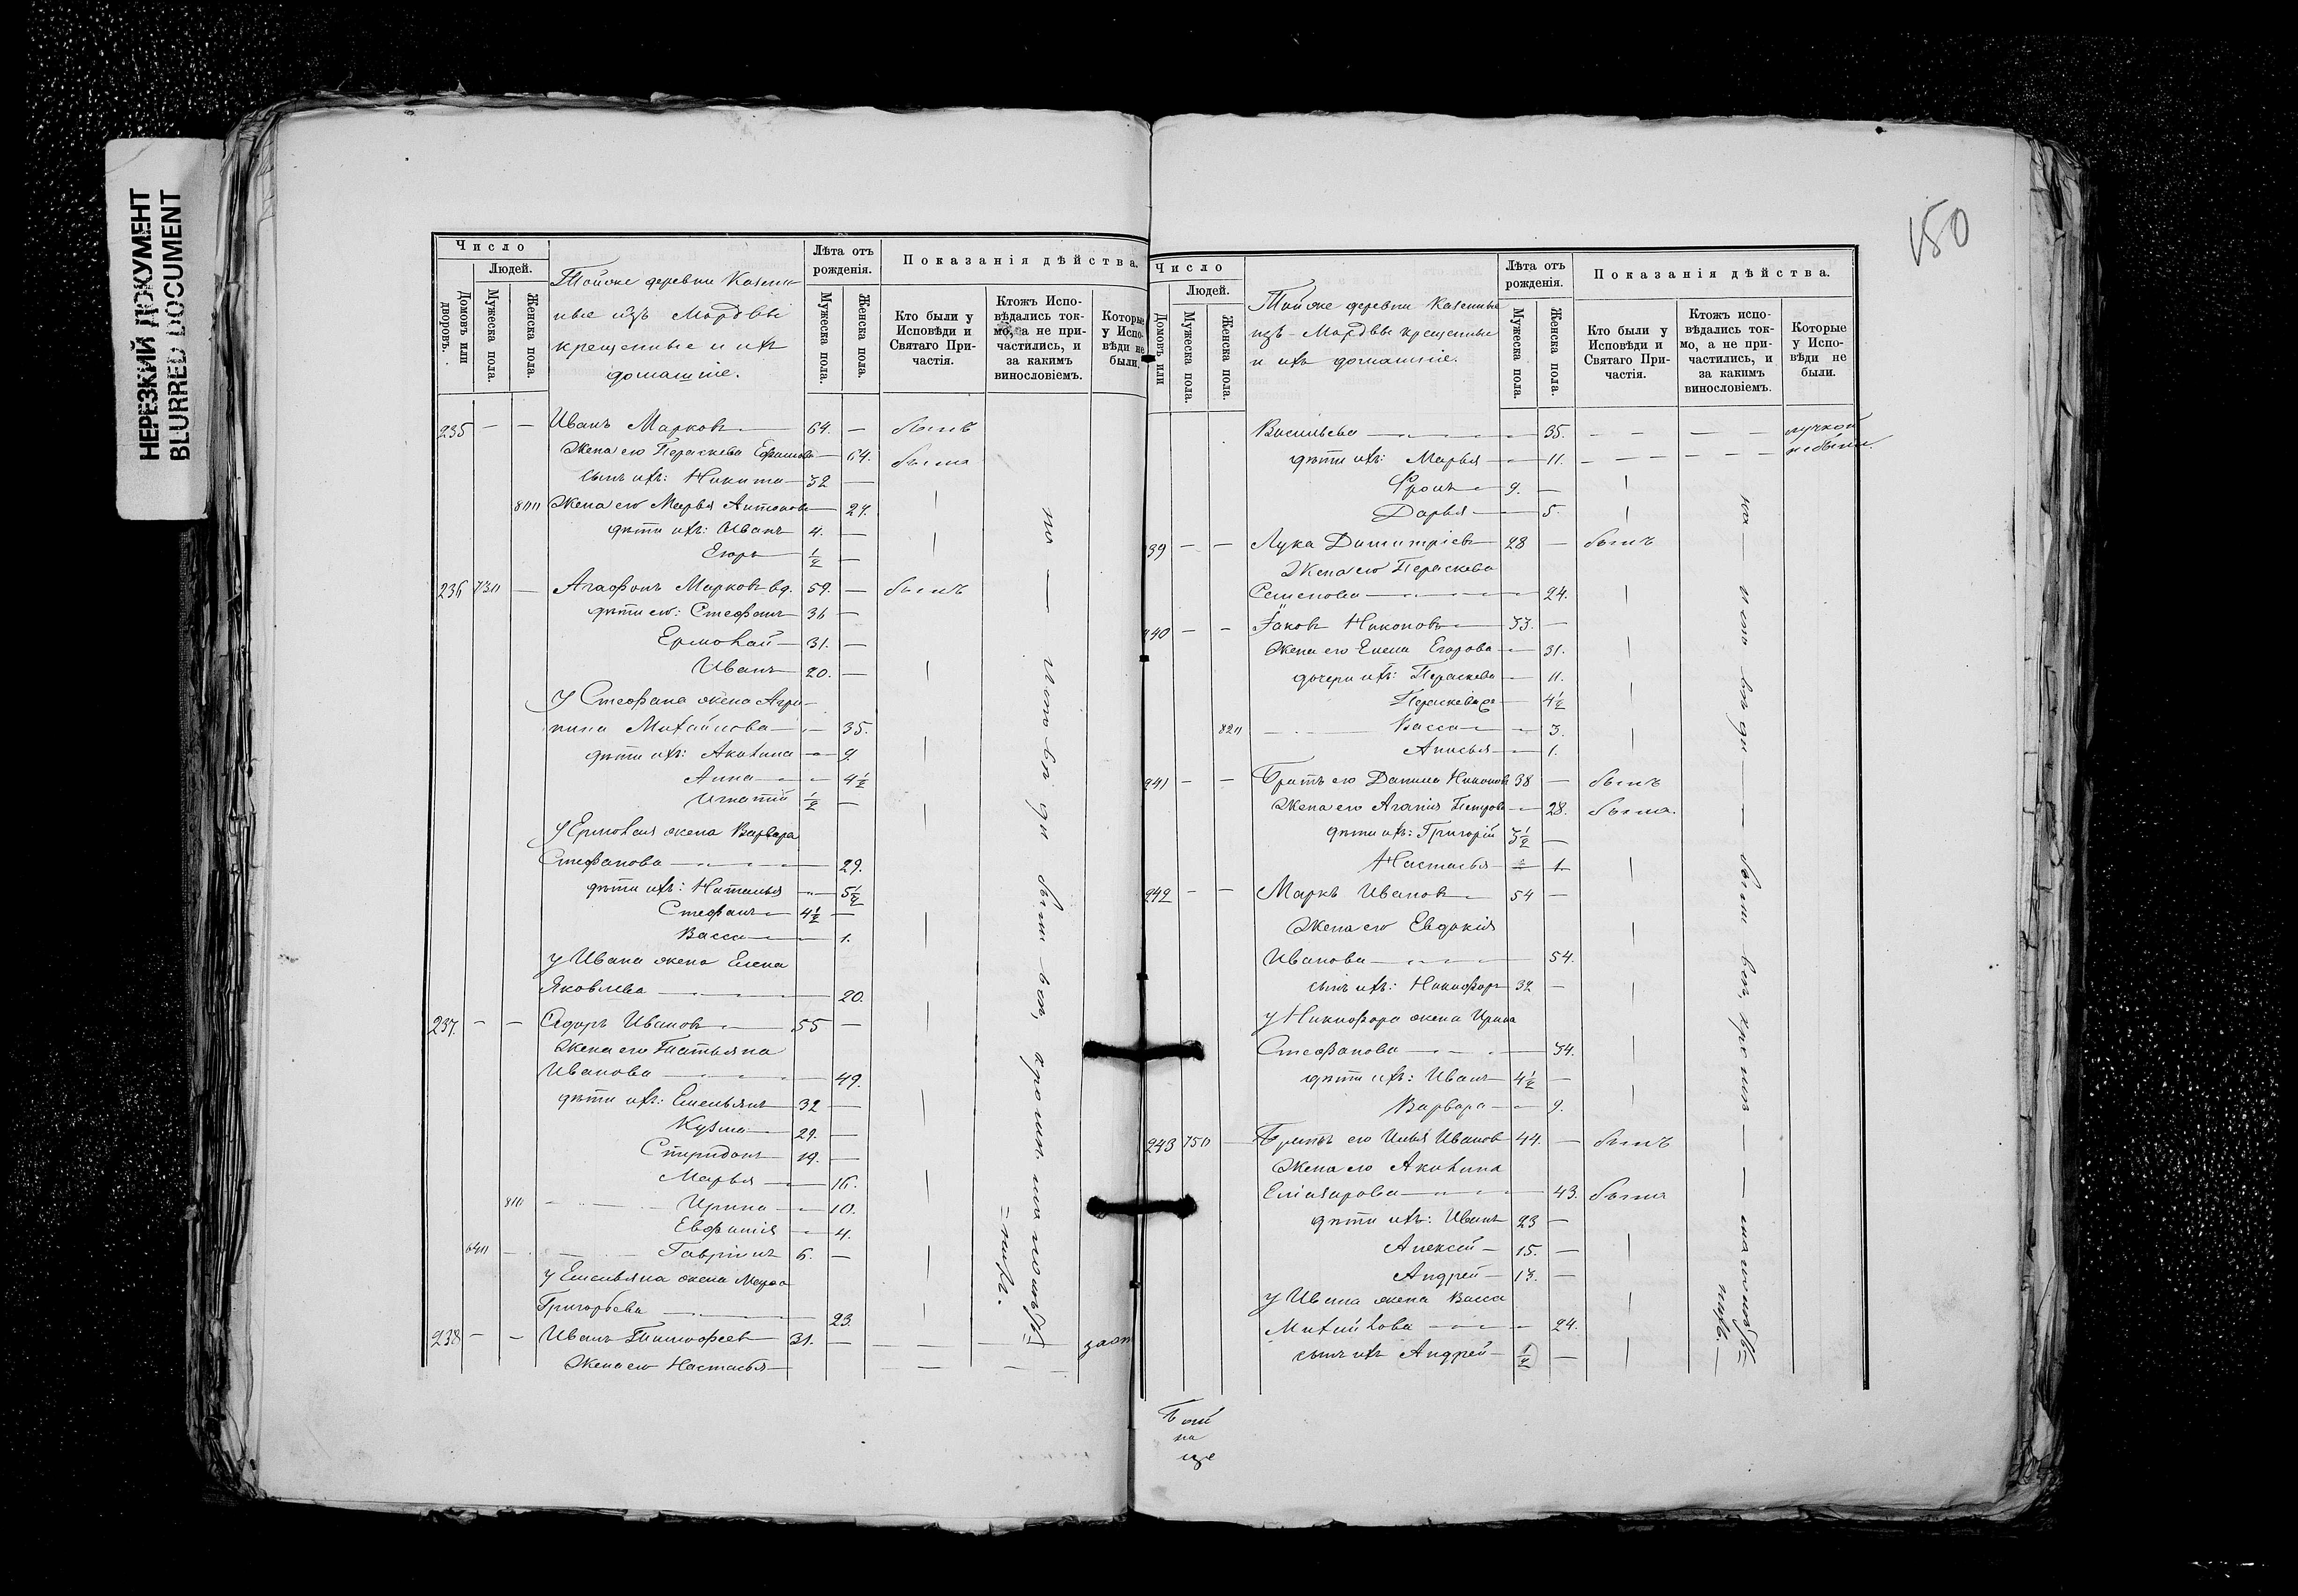 НЕРЕЗКИЙ ДОКУМЕНТ
BLURRED DOCUMENT
Число
Людей.
Домовъ или дворовъ.
Мужеска пола.
Женска пола.
Тойже деревни Казен-
ные изъ Мордвы
крещенные и ихъ
домашніе.
Лѣта отъ рожденія.
Мужеска пола.
Женска пола.
Показанія дѣйства.
Кто были у Исповѣди и Святаго Причастія.
Ктожъ Исповѣдались токмо, а не причастились, и за какимъ винословіемъ.
Которые у Исповѣди не были.
235 — — Иванъ Марковъ 64. — былъ
Жена его Параскева 64. была
сынъ ихъ: Никита 32 —
Жена его Марья Антонова 27.
дѣти ихъ: Иванъ 4. —
Егоръ ½ —
236 730 — Агафонъ Марковъ вд. 59. — былъ
дѣти его: Стефанъ 36 —
Ермолай 31. —
Иванъ 20. —
У Стефана жена Агри-
пина Михайлова 35.
дѣти ихъ: Акилина 9.
Анна 4½
Игнатій ½ —
У Ермолая жена Варвара
Стефанова 29.
дѣти ихъ: Наталья 5½
Стефанъ 4½ —
Васса 1.
У Ивана жена Елена
Яковлева 20.
237. — — Ѳедоръ Ивановъ 55 —
Жена его Татьяна
Иванова 49.
дѣти ихъ: Емельянъ 32 —
Кузма 29. —
Спиридонъ 19. —
Марья 16.
Ирина 10.
Евфимія 4.
Гавріилъ 6. —
У Емельяна жена
Григорьева 23.
238 — — Иванъ Тимофеевъ 31. —
Жена его Настасья
150
Число
Людей.
Домовъ или
Мужеска пола.
Женска пола.
Той же деревни Казенные
изъ Мордвы крещенные
и ихъ домашніе.
Лѣта отъ рожденія.
Мужеска пола.
Женска пола.
Показанія дѣйства.
Кто были у Исповѣди и Святаго Причастія.
Ктожъ исповѣдались токмо, а не причастились, и за какимъ винословіемъ.
Которые у Исповѣди не были.
Васильева 35. — — — —
дѣти ихъ: Марья 11. — — — —
Фролъ 9. —
Дарья 5.
39 — — Лука Димитріевъ 28 — былъ
Жена его Параскева
Семенова 24.
240 — — Іаковъ Никоновъ 33. —
Жена его Елена Егорова 31.
дочери ихъ: Параскева 11.
Параскева 4½
820 Васса 3.
Анисья 1.
241 — — Братъ его Данила Никоновъ 38 — былъ
Жена его Агапія Петрова 28. была.
дѣти ихъ: Григорій 3½ —
Настасья 1.
242 — — Маркъ Ивановъ 54 —
Жена его Евдокія
Иванова 54.
сынъ ихъ: Никифоръ 32 —
У Никифора жена Ирина
Стефанова 34.
дѣти ихъ: Иванъ 4½ —
Варвара 9.
243 750 — Братъ его Илья Ивановъ 44. — былъ
Жена его Акилина
Еліазарова 43. была
дѣти ихъ: Иванъ 23 —
Алексѣй 15. —
Андрей 13. —
У Ивана жена Васса
Михайлова 24.
сынъ ихъ Андрей ½ —